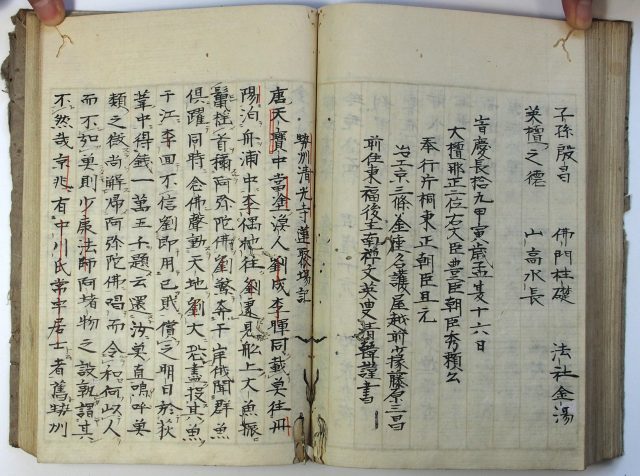 子孫殷昌　佛門柱礎　法社金湯
英檀之德　山高水長
旹慶長拾九甲寅歳孟夏十六日
大檀那正二位右大臣豊臣朝臣秀頼公
奉行片桐東正朝臣且元
冶工京三條釜座名護屋越前少掾藤原三昌
前住東福後住南禅文英叟清韓謹書
勢州清光寺蓮聚場記
唐天寶中當金漁人劉成李暉同載魚往丹
陽泊舟浦中李偶他往劉遽見舩上大魚振
鬣搖首稱阿弥陀佛劉驚奔于岸俄聞群魚
俱躍同時念佛聲動天地劉大恐盡投其魚
于江李回不信劉即用己財償之明日於荻
葦中得錢一萬五千題云還汝魚直嗚呼魚
類之微尚解歸阿弥陀佛唱而令和何以人
而不如魚則少康法師阿堵物之設孰謂其
不然哉京兆有中川氏常中居士者舊勢州